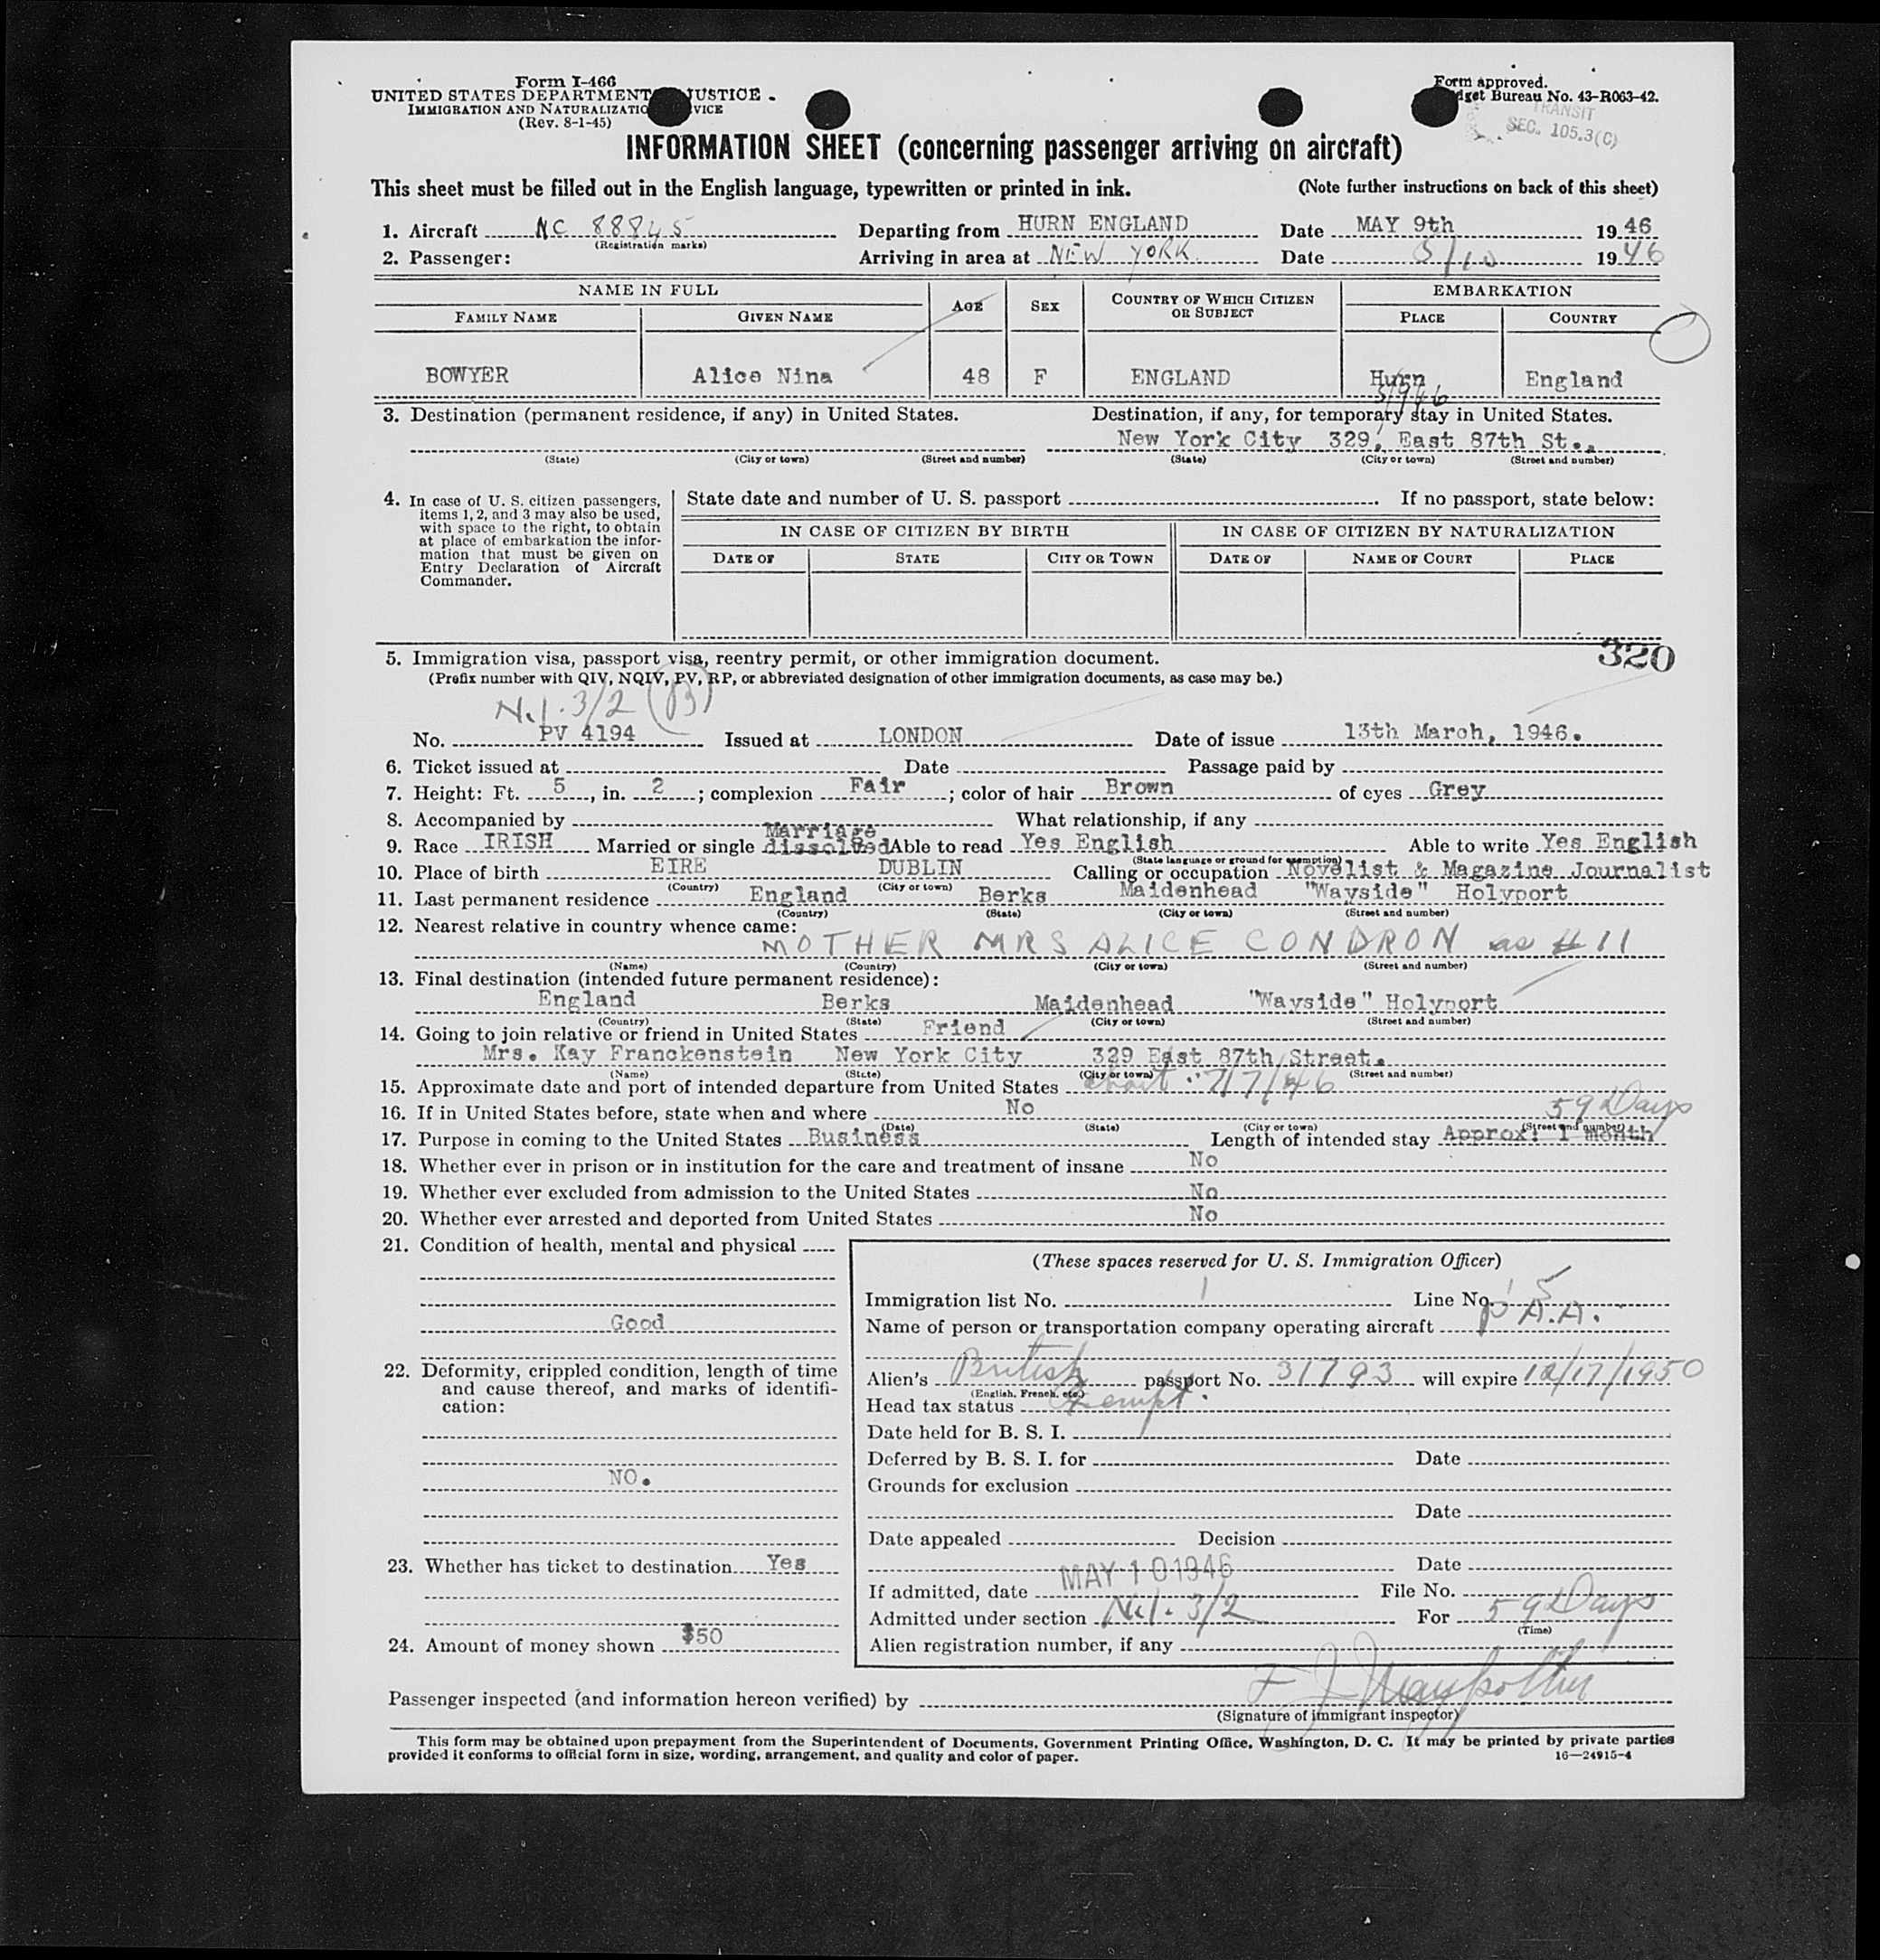 Form I-466
UNITED STATES DEPARTMENT JUSTICE
IMMIGRATION AND NATURALIZATIO VICE
(Rev. 8-1-45)
Form approved.
dget Bureau No. 43-R063-42.
TRANSIT
SEC. 105.3(C)
INFORMATION SHEET (concerning passenger arriving on aircraft)
This sheet must be filled out in the English language, typewritten or printed in ink. (Note further instructions on back of this sheet)
1. Aircraft NC 88845 Departing from HURN ENGLAND Date MAY 9th 1946
(Registration marks)
2. Passenger: Arriving in area at NEW YORK Date 5/10 1946
NAME IN FULL AGE SEX COUNTRY OF WHICH CITIZEN OR SUBJECT EMBARKATION
FAMILY NAME GIVEN NAME PLACE COUNTRY
BOWYER Alice Nina 48 F ENGLAND Hurn England
5/9/46
3. Destination (permanent residence, if any) in United States. Destination, if any, for temporary stay in United States.
New York City 329, East 87th St.,
(State) (City or town) (Street and number) (State) (City or town) (Street and number)
4. In case of U. S. citizen passengers, items 1, 2, and 3 may also be used, with space to the right, to obtain at place of embarkation the information that must be given on Entry Declaration of Aircraft Commander.
State date and number of U. S. passport . If no passport, state below:
IN CASE OF CITIZEN BY BIRTH IN CASE OF CITIZEN BY NATURALIZATION
DATE OF STATE CITY OR TOWN DATE OF NAME OF COURT PLACE
320
5. Immigration visa, passport visa, reentry permit, or other immigration document.
(Prefix number with QIV, NQIV, PV, RP, or abbreviated designation of other immigration documents, as case may be.)
N.I. 3/2 (B)
No. PV 4194 Issued at LONDON Date of issue 13th March, 1946.
6. Ticket issued at Date Passage paid by
7. Height: Ft. 5, in. 2; complexion Fair; color of hair Brown of eyes Grey
8. Accompanied by What relationship, if any
9. Race IRISH Married or single Marriage dissolved Able to read Yes English Able to write Yes English
(State language or ground for exemption)
10. Place of birth EIRE DUBLIN Calling or occupation Novelist & Magazine Journalist
(Country) (City or town)
11. Last permanent residence England Berks Maidenhead "Wayside" Holyport
(Country) (State) (City or town) (Street and number)
12. Nearest relative in country whence came:
MOTHER MRS ALICE CONDRON as # 11
(Name) (Country) (City or town) (Street and number)
13. Final destination (intended future permanent residence):
England Berks Maidenhead "Wayside" Holyport
(Country) (State) (City or town) (Street and number)
14. Going to join relative or friend in United States Friend
Mrs. Kay Franckenstein New York City 329 East 87th Street.
(Name) (State) (City or town) (Street and number)
15. Approximate date and port of intended departure from United States about 7/7/46
16. If in United States before, state when and where No
(Date) (State) (City or town) (Street and number)
59 Days
17. Purpose in coming to the United States Business Length of intended stay Approx: 1 month
18. Whether ever in prison or in institution for the care and treatment of insane No
19. Whether ever excluded from admission to the United States No
20. Whether ever arrested and deported from United States No
21. Condition of health, mental and physical
Good
22. Deformity, crippled condition, length of time and cause thereof, and marks of identification:
NO.
23. Whether has ticket to destination Yes
24. Amount of money shown $50
(These spaces reserved for U. S. Immigration Officer)
Immigration list No. 1 Line No. 5
Name of person or transportation company operating aircraft P.A.A.
Alien's British passport No. 31793 will expire 12/17/1950
(English, French, etc.)
Head tax status Exempt
Date held for B. S. I.
Deferred by B. S. I. for Date
Grounds for exclusion
Date
Date appealed Decision
Date
If admitted, date MAY 10 1946 File No.
Admitted under section N.I. 3/2 For 59 Days
(Time)
Alien registration number, if any
Passenger inspected (and information hereon verified) by
(Signature of immigrant inspector)
This form may be obtained upon prepayment from the Superintendent of Documents, Government Printing Office, Washington, D. C. It may be printed by private parties
provided it conforms to official form in size, wording, arrangement, and quality and color of paper. 16—24915-4